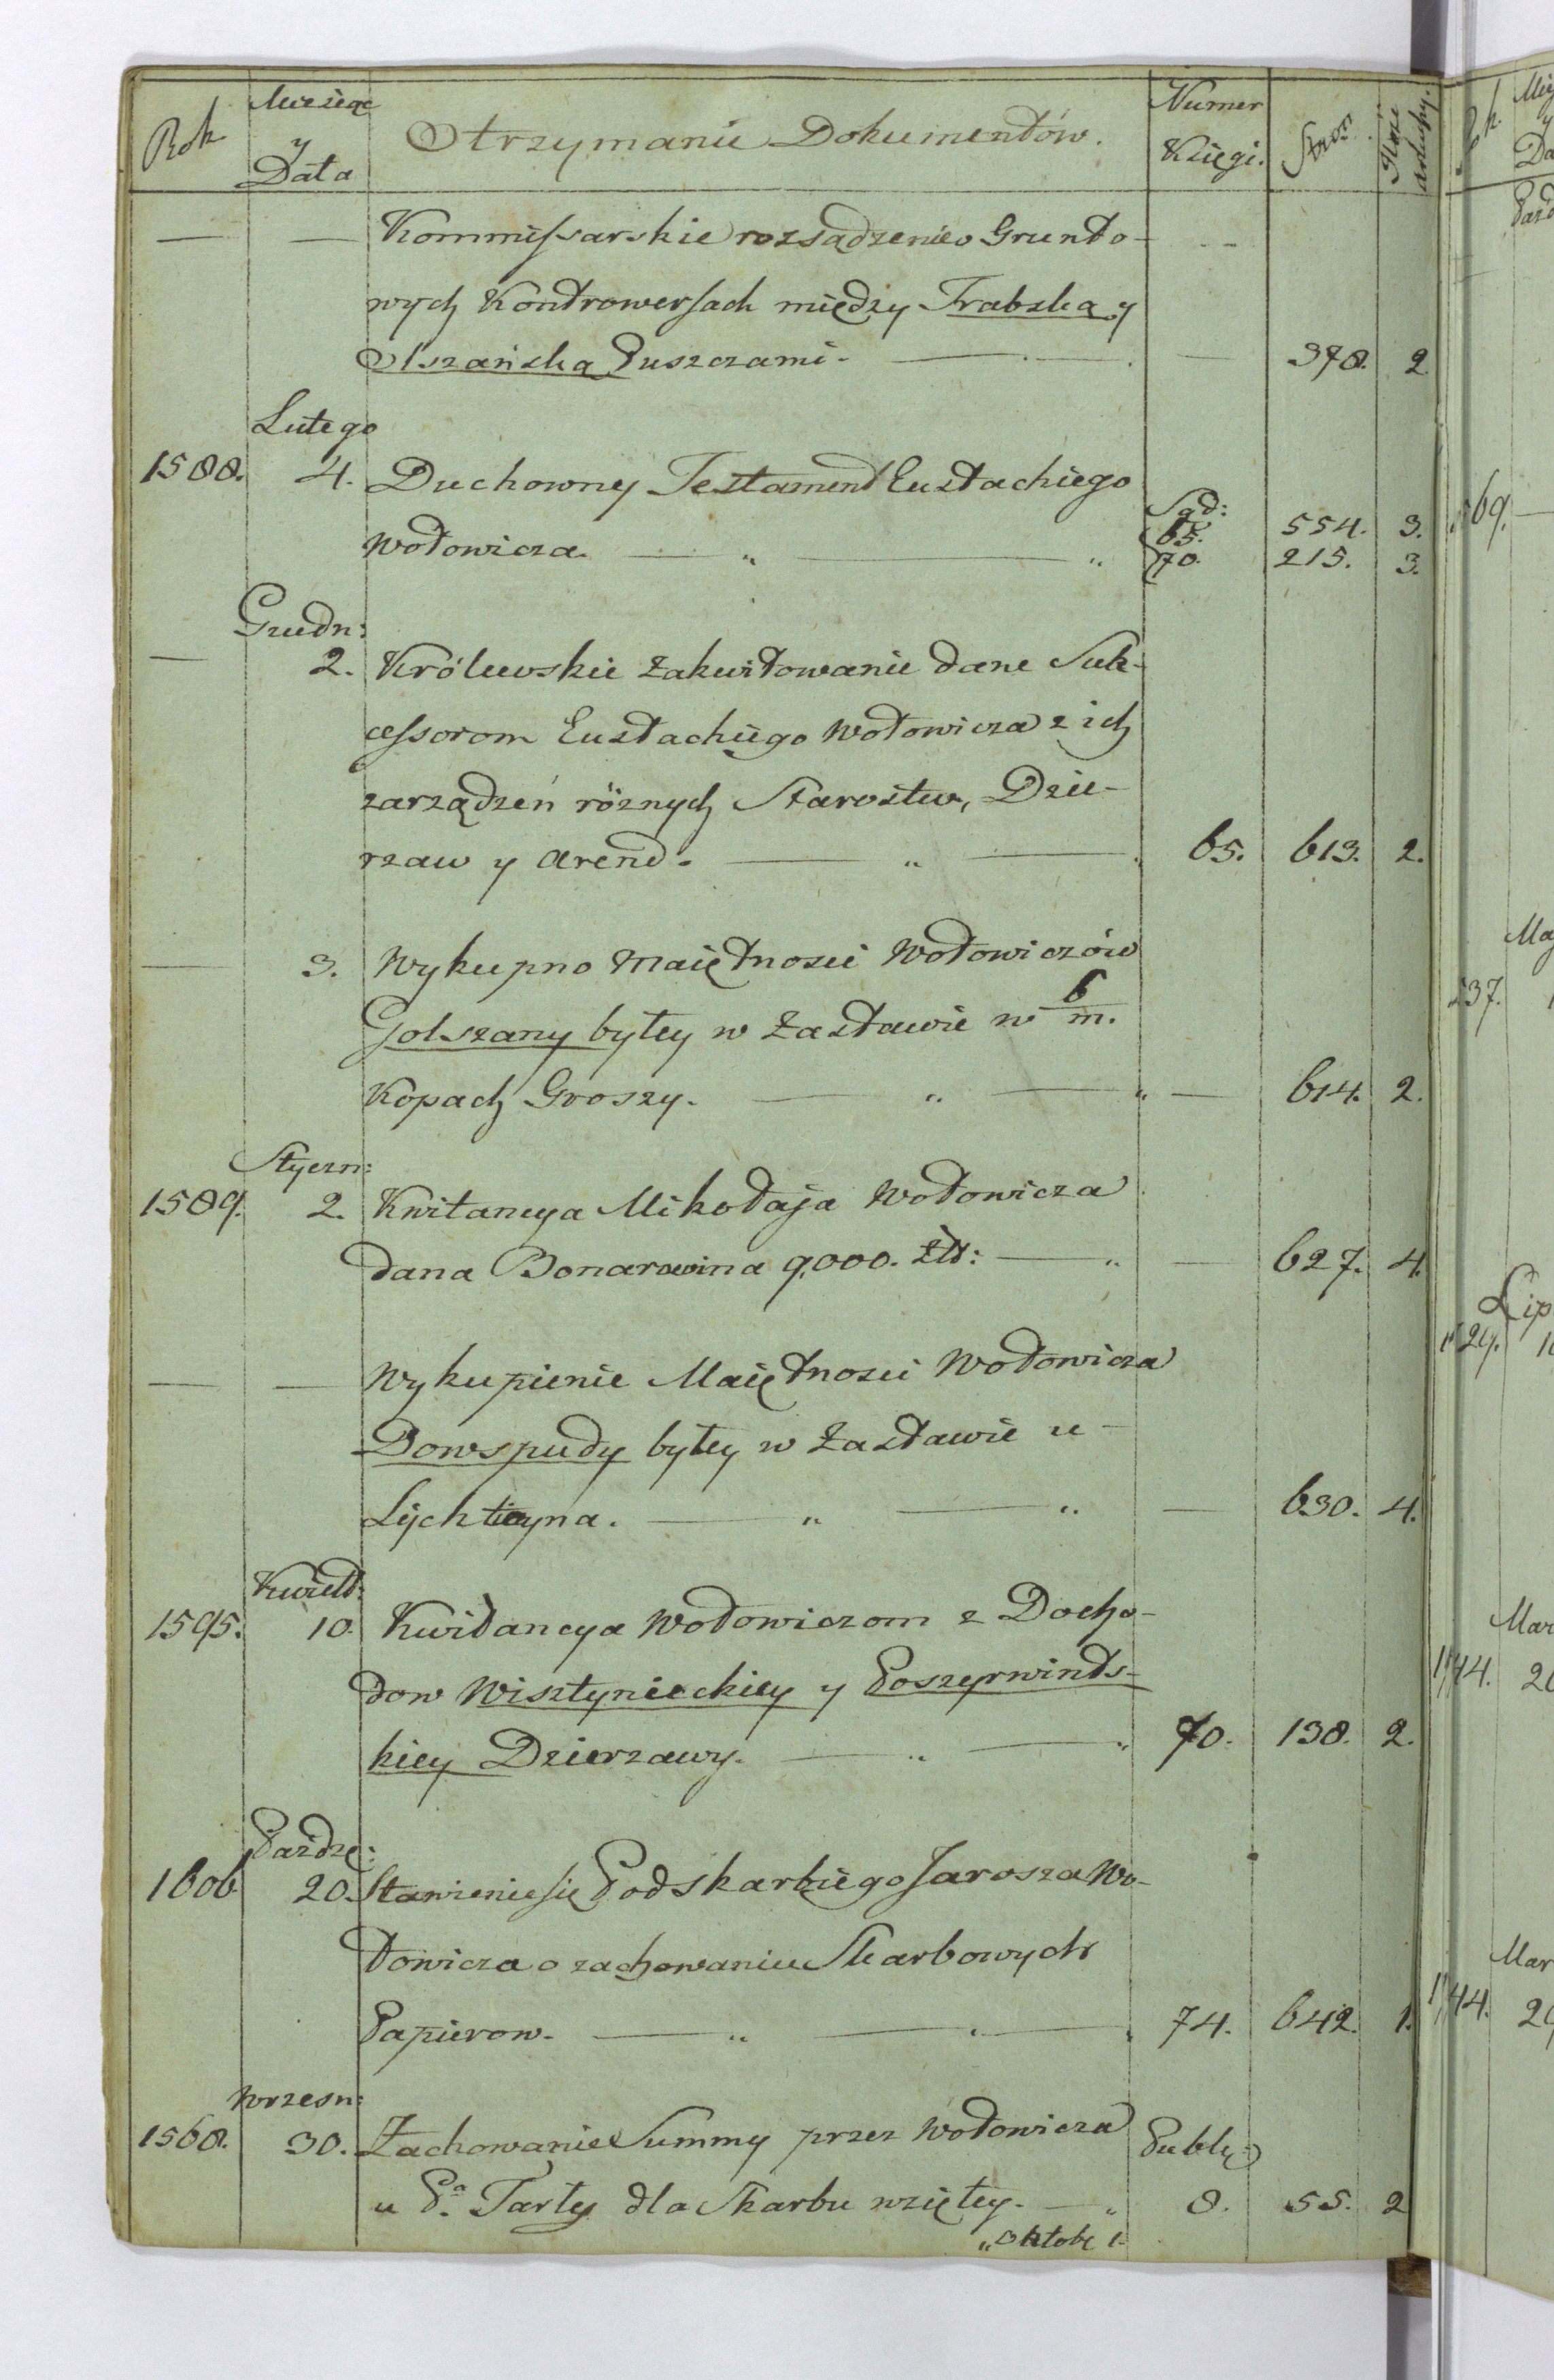 Rok Miesiąc y Data Otrzymanie Dokumentów. Numer Księgi. Stron.
— — Kommissarskie rozsądzenie o Grunto-
wych Kontrowersach między Trabską y
Olszańską Puszczami. — 378. 2
Lutego
1588. 4. Duchowny Testament Eustachiego
Sąd:
Wołowicza. 65. 554. 3.
70. 215. 3.
Grudn:
— 2. Królewskie zakwitowanie dane Suk-
cessorom Eustachiego Wołowicza z ich
zarządzeń różnych Starostw, Dzie-
rzaw y Arend. 65. 613. 2.
— 3. Wykupno Maiętnosci Wołowiczów
Golszany byłey w Zastawie w 6/m.
Kopach Groszy. — 614. 2.
Styczn:
1589. 2. Kwitancya Mikołaja Wołowicza
dana Bonarowina 9,000. Złł: — 627. 4.
— — Wykupienie Maiętnosci Wołowicza
Dowspudy byłey w Zastawie u
— 630. 4.
Kwiet:
1595. 10. Kwitancya Wołowiczom z Docho-
dow Wisztynieckiey y Poszyrwints-
kiey Dzierzawy. 70. 138. 2.
Paźdz:
1606 20. Stawienie się Podskarbiego Jarosza Wo-
łowicza o zachowaniu Skarbowych
Papierow. 74. 642. 1.
Wrzesn:
1568. 30. Zachowanie Summy przez Wołowicza Publ:
u Pa Tarły dla Skarbu wziętey. 8. 55. 2